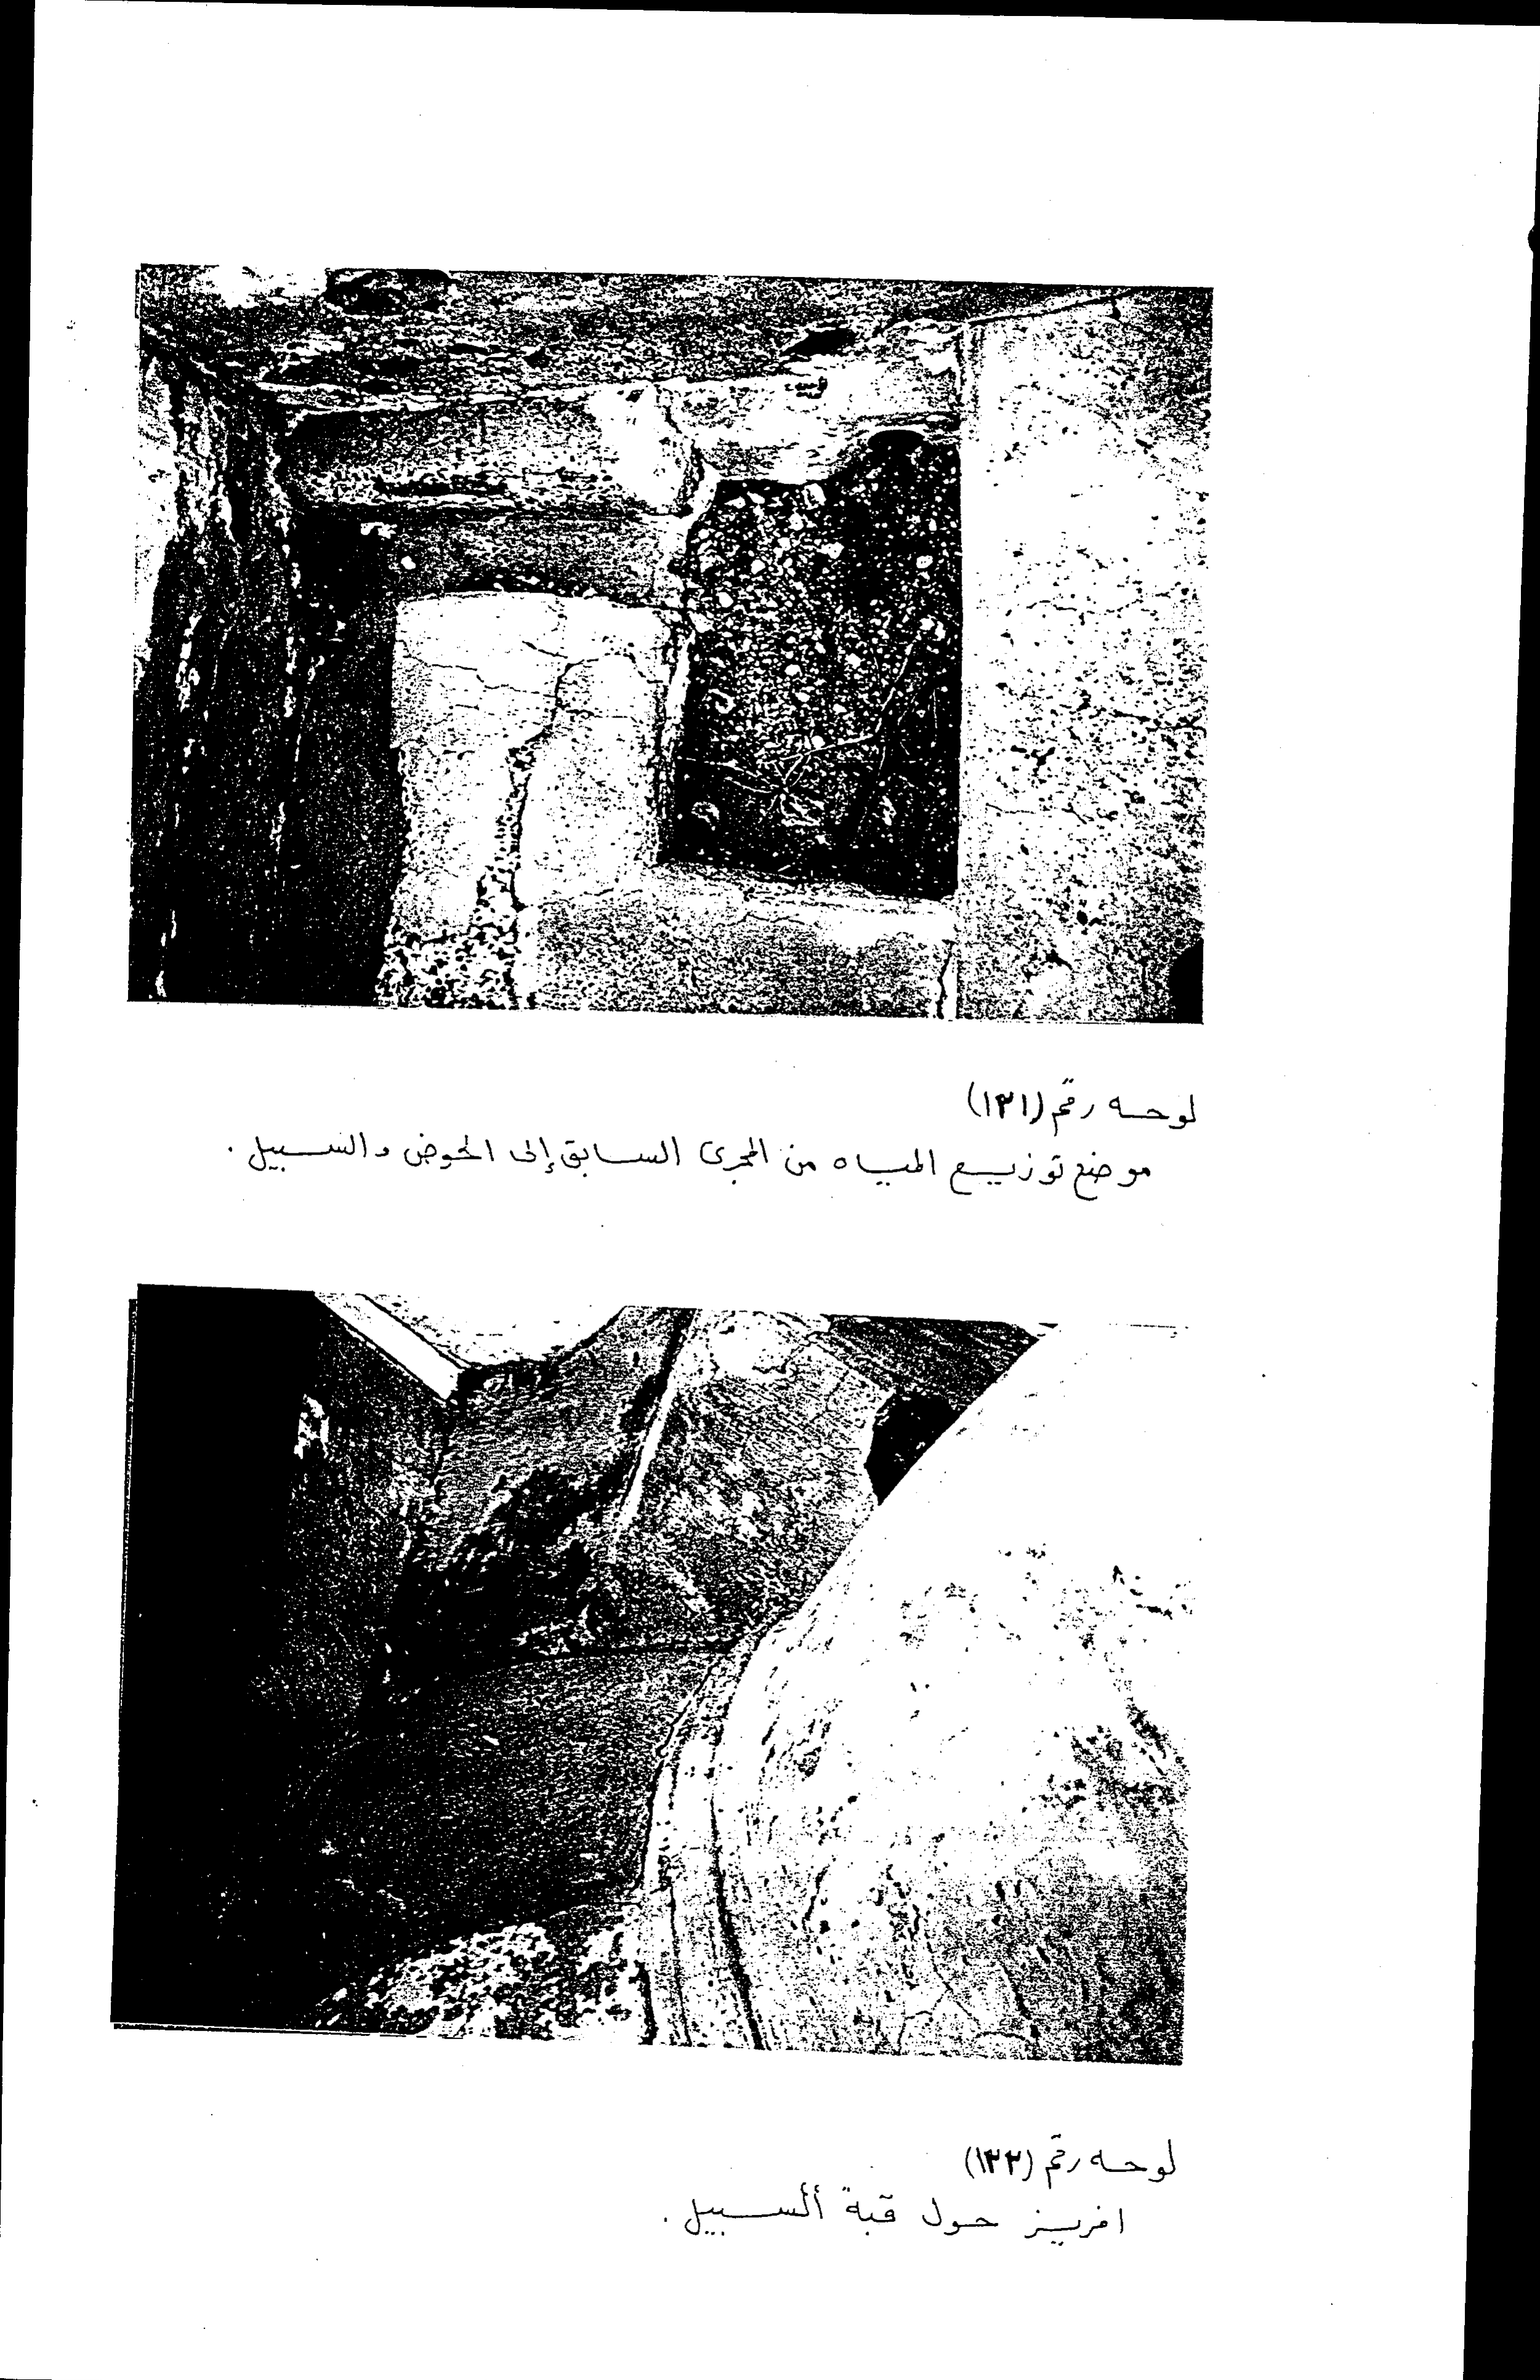 لوحه رقم (١٢١)
موضع توزيع المياه من المجرى السابق إلى الحوض والسبيل .
لوحه رقم (١٢٢)
افريز حول قبة ألسبيل .